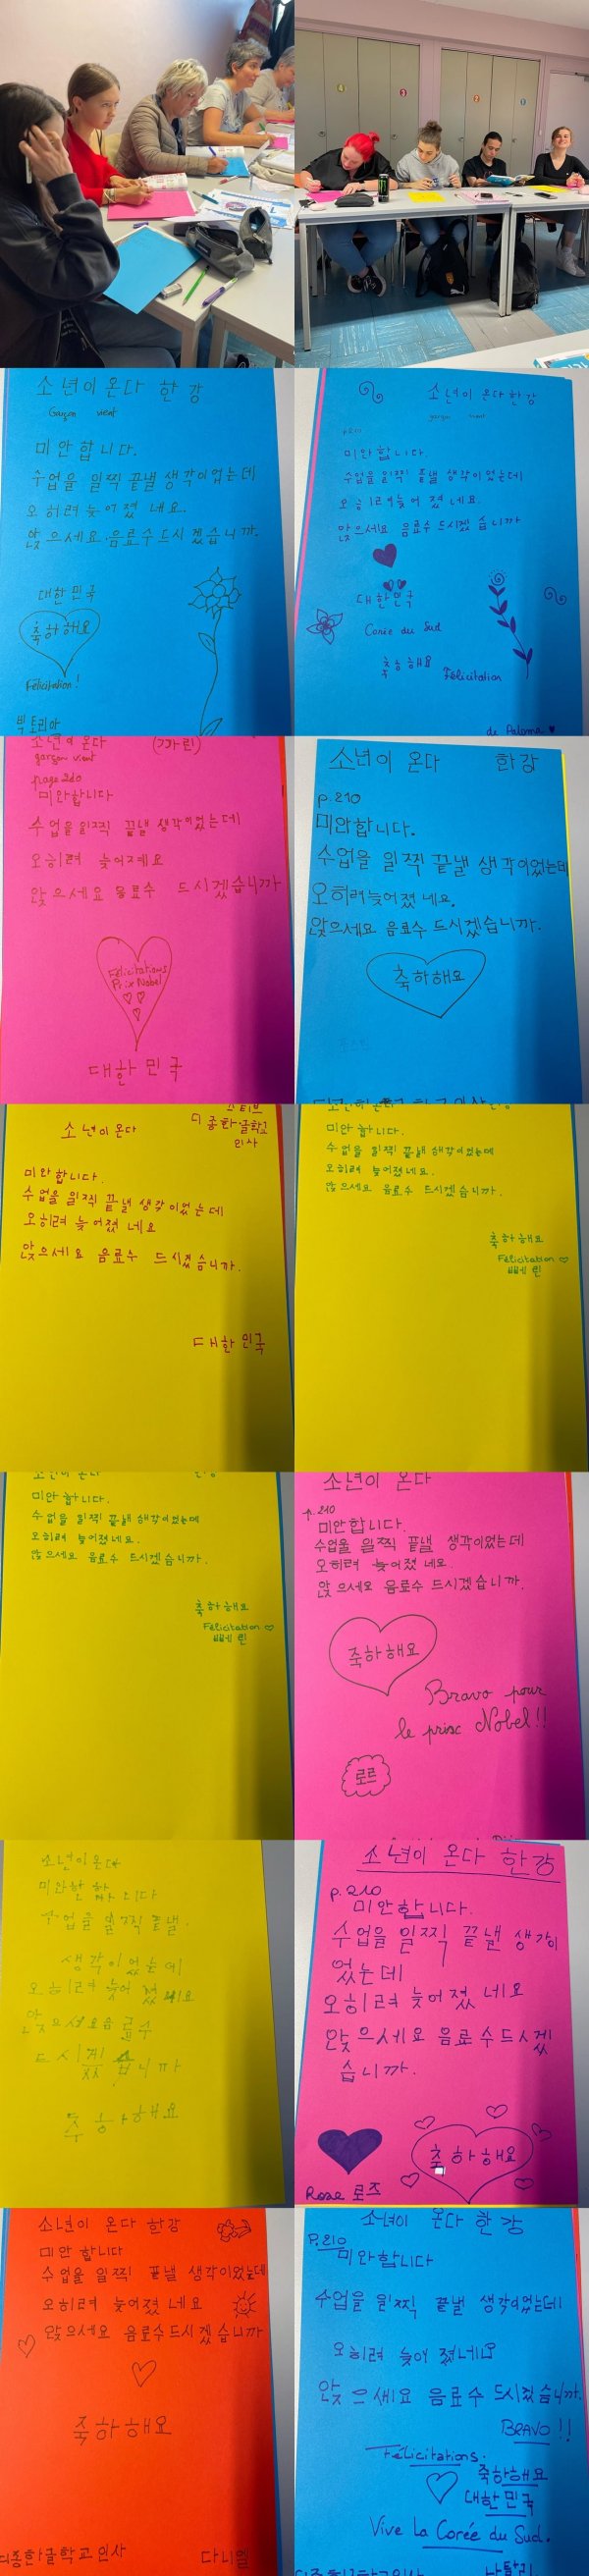 4
3
2
소년이 온다 한강
Garçon vient
미안합니다.
수업을 일찍 끝낼 생각이었는데
오히려 늦어졌네요.
앉으세요. 음료수 드시겠습니까.
대한민국
축하해요
Félicitation!
빅토리아
소년이 온다 한강
garçon vient
p210
미안합니다.
수업을 일찍 끝낼 생각이었는데
오히려 늦어졌네요.
앉으세요 음료수 드시겠습니까
대한민국
Corée du Sud
축하해요 Félicitation
de Paloma
소년이 온다
garçon vient
page 210
미안합니다
수업을 일찍 끝낼 생각이었는데
오히려 늦어져네요
앉으세요 음료수 드시겠습니까
Félicitations
Prix Nobel
대한민국
소년이 온다 한강
p.210
미안합니다.
수업을 일찍 끝낼 생각이었는데
오히려늦어졌네요.
앉으세요 음료수 드시겠습니까.
축하해요
디종한글학교
인사
소년이 온다
미안합니다.
수업을 일찍 끝낼 생각이었는데
오히려 늦어졌네요
앉으세요 음료수 드시겠습니까.
대한민국
미안합니다.
수업을 일찍 끝낼 생각이었는데
오히려 늦어졌네요.
앉으세요 음료수 드시겠습니까.
축하해요
Félicitation
미안합니다.
수업을 일찍 끝낼 생각이었는데
오히려 늦어졌네요.
앉으세요 음료수 드시겠습니까.
축하해요
Félicitation
소년이 온다
p.210
미안합니다.
수업을 일찍 끝낼 생각이었는데
오히려 늦어졌네요.
앉으세요 음료수 드시겠습니까.
축하해요
Bravo pour
le prix Nobel!!
로르
소년이온다
수업을 일찍 끝낼.
생각이었는데
오히려 늦어졌네요
앉으세요음료수
드시겠습니까
축하해요
소년이 온다 한강
p.210
미안합니다.
수업을 일찍 끝낼 생각이
었는데
오히려 늦어졌네요
앉으세요 음료수드시겠
습니까.
축하해요
Rose 로즈
소년이 온다 한강
미안합니다
수업을 일찍 끝낼 생각이었는데
오히려 늦어졌네요
앉으세요 음료수드시겠습니까
축하해요
디종한글학교인사 다니엘
소년이 온다 한강
P.210
미안합니다
수업을 일찍 끝낼 생각이었는데
오히려 늦어졌네요
앉으세요 음료수 드시겠습니까.
BRAVO!!
Félicitations.
축하해요
대한민국
Vive la Corée du Sud.